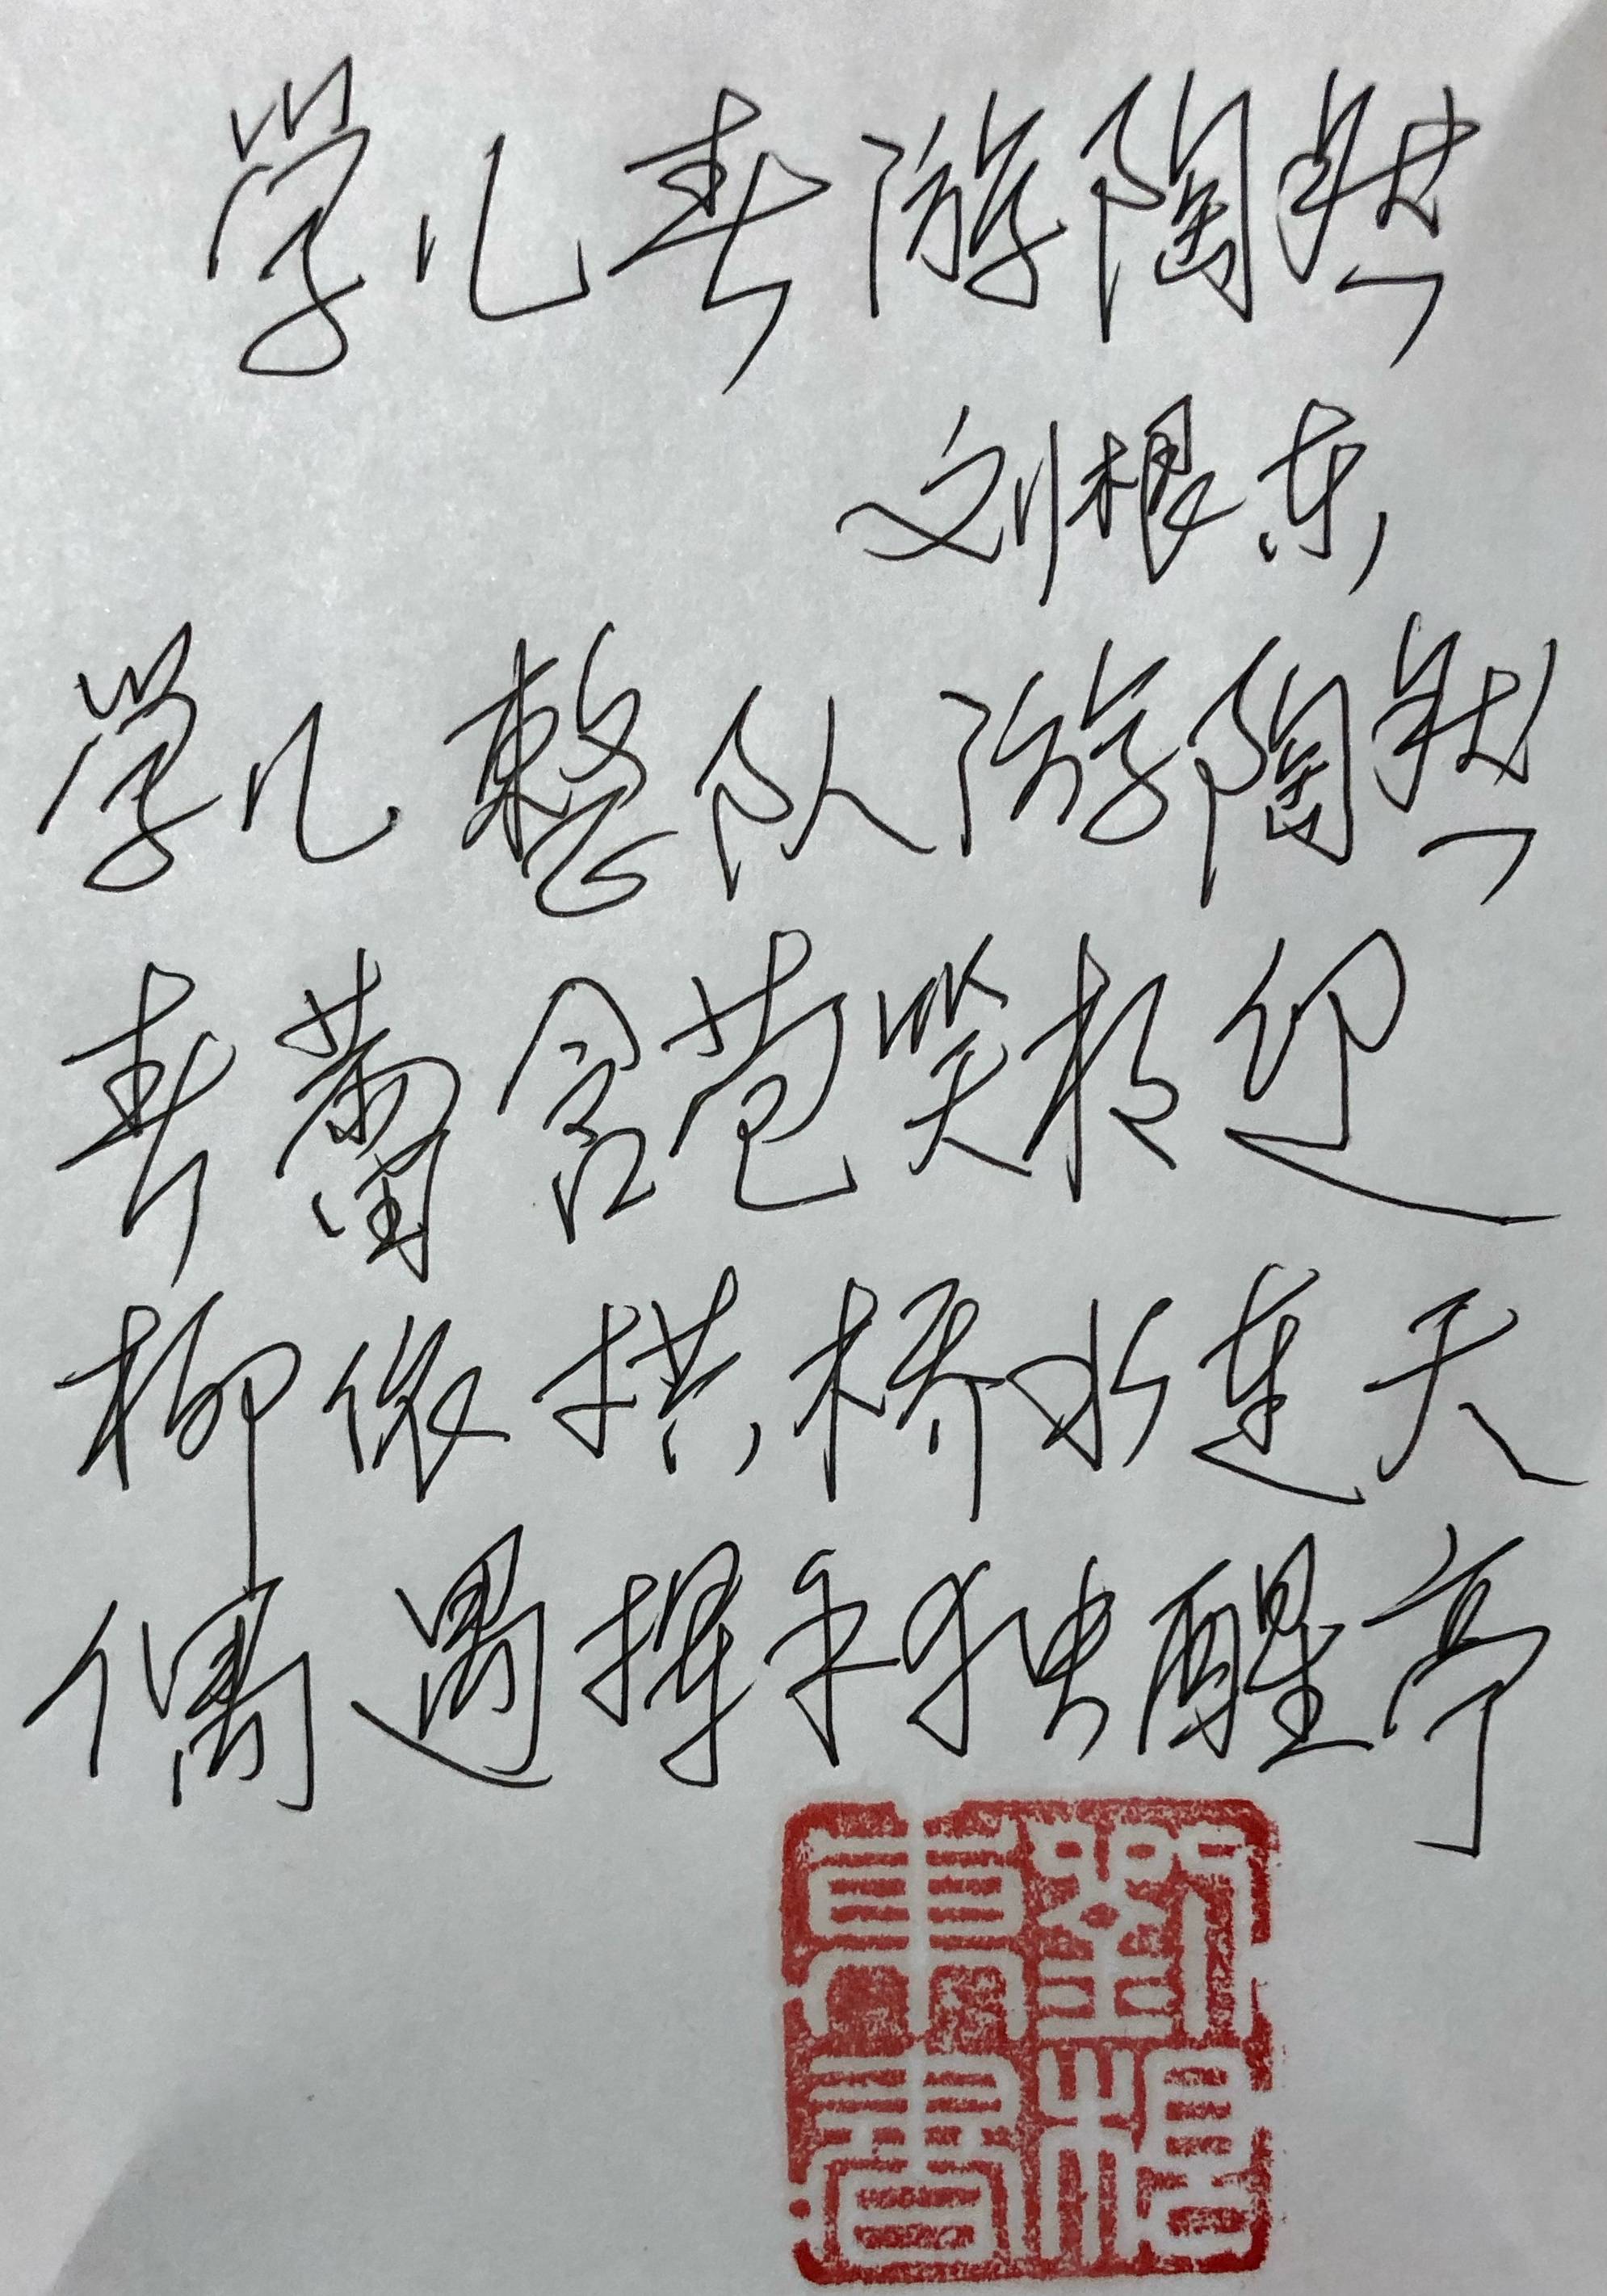 学儿春游陶然
刘根东
学儿整队游陶然
春蕾含苞笑相迎
柳依拱桥水连天
偶遇挥手独醒亭
劉根東書